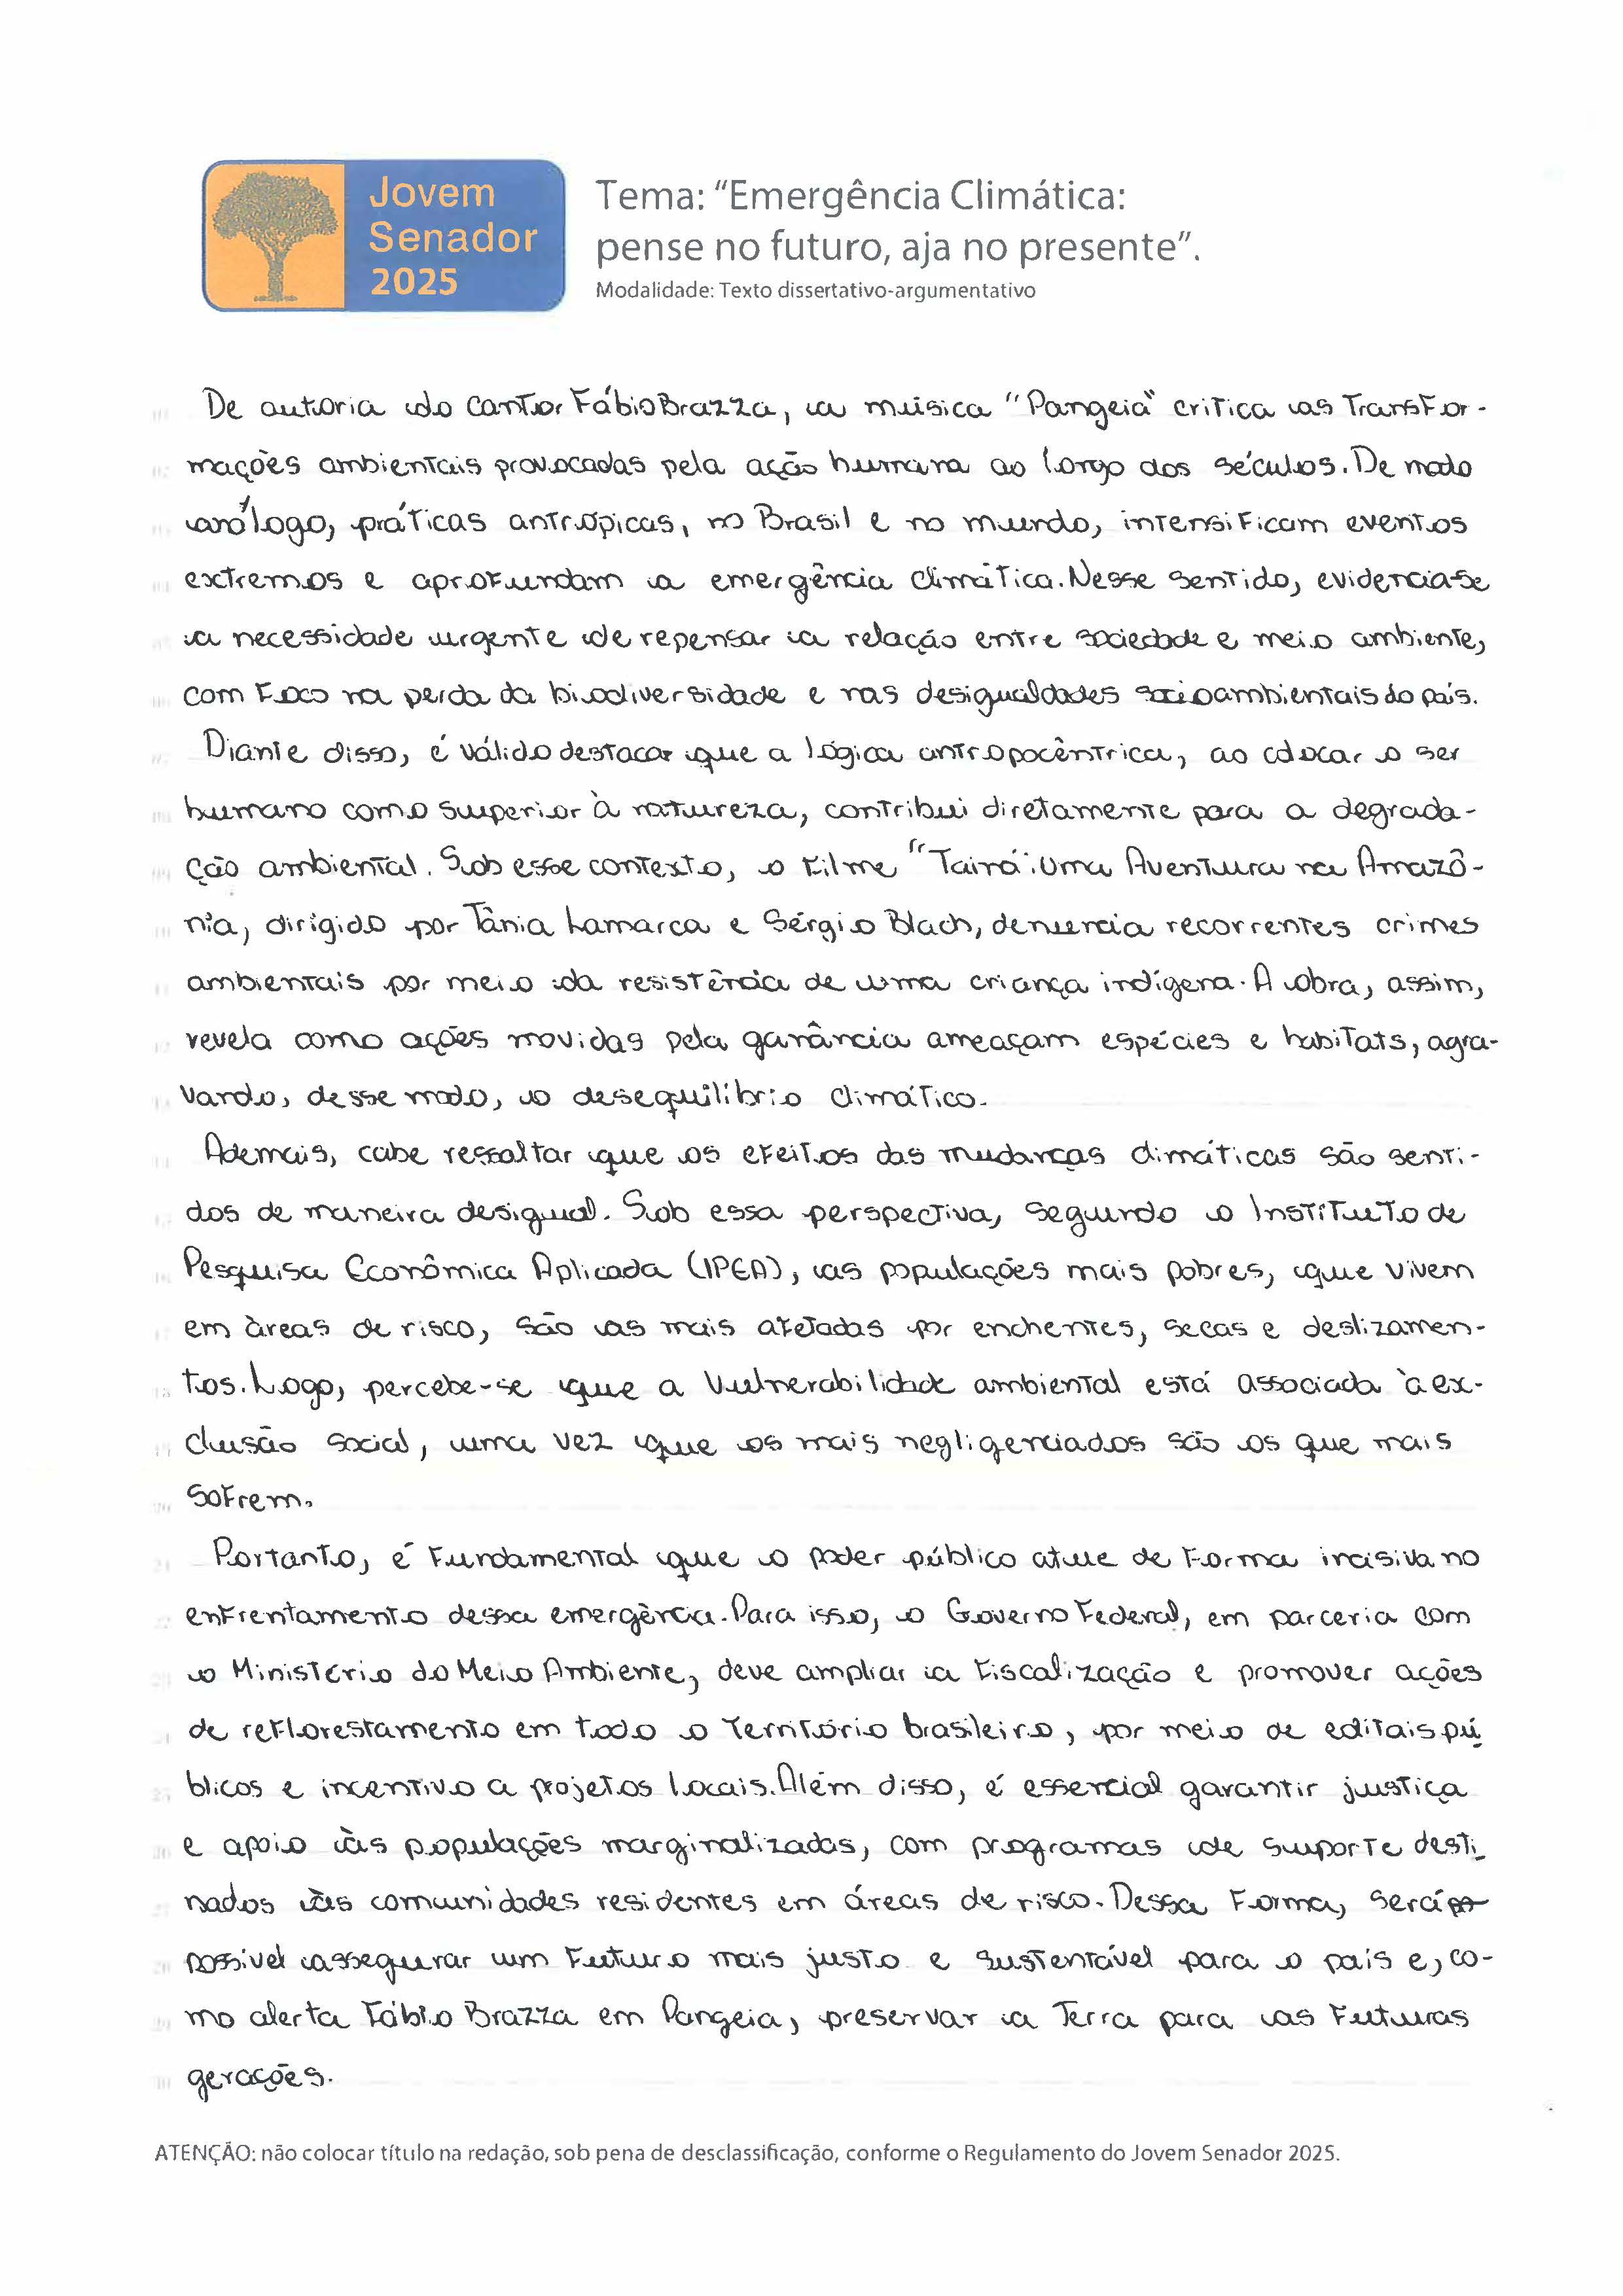 Jovem
Senador
2025
Tema: "Emergência Climática:
pense no futuro, aja no presente".
Modalidade: Texto dissertativo-argumentativo
De autoria do cantor Fábio Brazza, a música "Pangeia" critica as transfor-
mações ambientais provocadas pela ação humana ao longo dos séculos. De modo
análogo, práticas antrópicas, no Brasil e no mundo, intensificam eventos
extremos e aprofundam a emergência climática. Nesse sentido, evidencia-se
a necessidade urgente de repensar a relação entre sociedade e meio ambiente,
com foco na perda da biodiversidade e nas desigualdades socioambientais do país.
Diante disso, é válido destacar que a lógica antropocêntrica, ao colocar o ser
humano como superior à natureza, contribui diretamente para a degrada-
ção ambiental. Sob esse contexto, o filme "Tainá: Uma Aventura na Amazô-
nia, dirigido por Tânia Lamarca e Sérgio Bloch, denuncia recorrentes crimes
ambientais por meio da resistência de uma criança indígena. A obra, assim,
revela como ações movidas pela ganância ameaçam espécies e habitats, agra-
vando, desse modo, o desequilíbrio climático.
Ademais, cabe ressaltar que os efeitos das mudanças climáticas são senti-
dos de maneira desigual. Sob essa perspectiva, segundo o Instituto de
Pesquisa Econômica Aplicada (IPEA), as populações mais pobres, que vivem
em àreas de risco, são as mais afetadas por enchentes, secas e deslizamen-
tos. Logo, percebe-se que a vulnerabilidade ambiental está associada à ex-
clusão social, uma vez que os mais negligenciados são os que mais
sofrem.
Portanto, é fundamental que o poder público atue de forma incisiva no
enfrentamento dessa emergência. Para isso, o Governo Federal, em parceria com
o Ministério do Meio Ambiente, deve ampliar a fiscalização e promover ações
de reflorestamento em todo o território brasileiro, por meio de editais pú
blicos e incentivo a projetos locais. Além disso, é essencial garantir justiça
e apoio às populações marginalizadas, com programas de suporte desti_
nados às comunidades residentes em áreas de risco. Dessa forma, será po
possível assegurar um futuro mais justo e sustentável para o país e, co-
mo alerta Fábio Brazza em Pangeia, preservar a Terra para as futuras
gerações.
ATENÇÃO: não colocar título na redação, sob pena de desclassificação, conforme o Regulamento do Jovem Senador 2025.